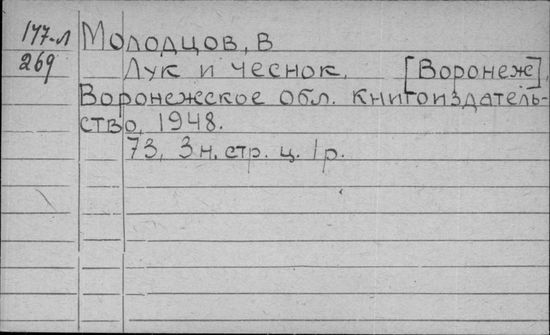 177-л Молодцов, В
269 Лук и чеснок. [Воронеж],
Воронежское обл. книгоиздатель-
ство, 1948.
73, 3 н. стр. ц. 1 р.